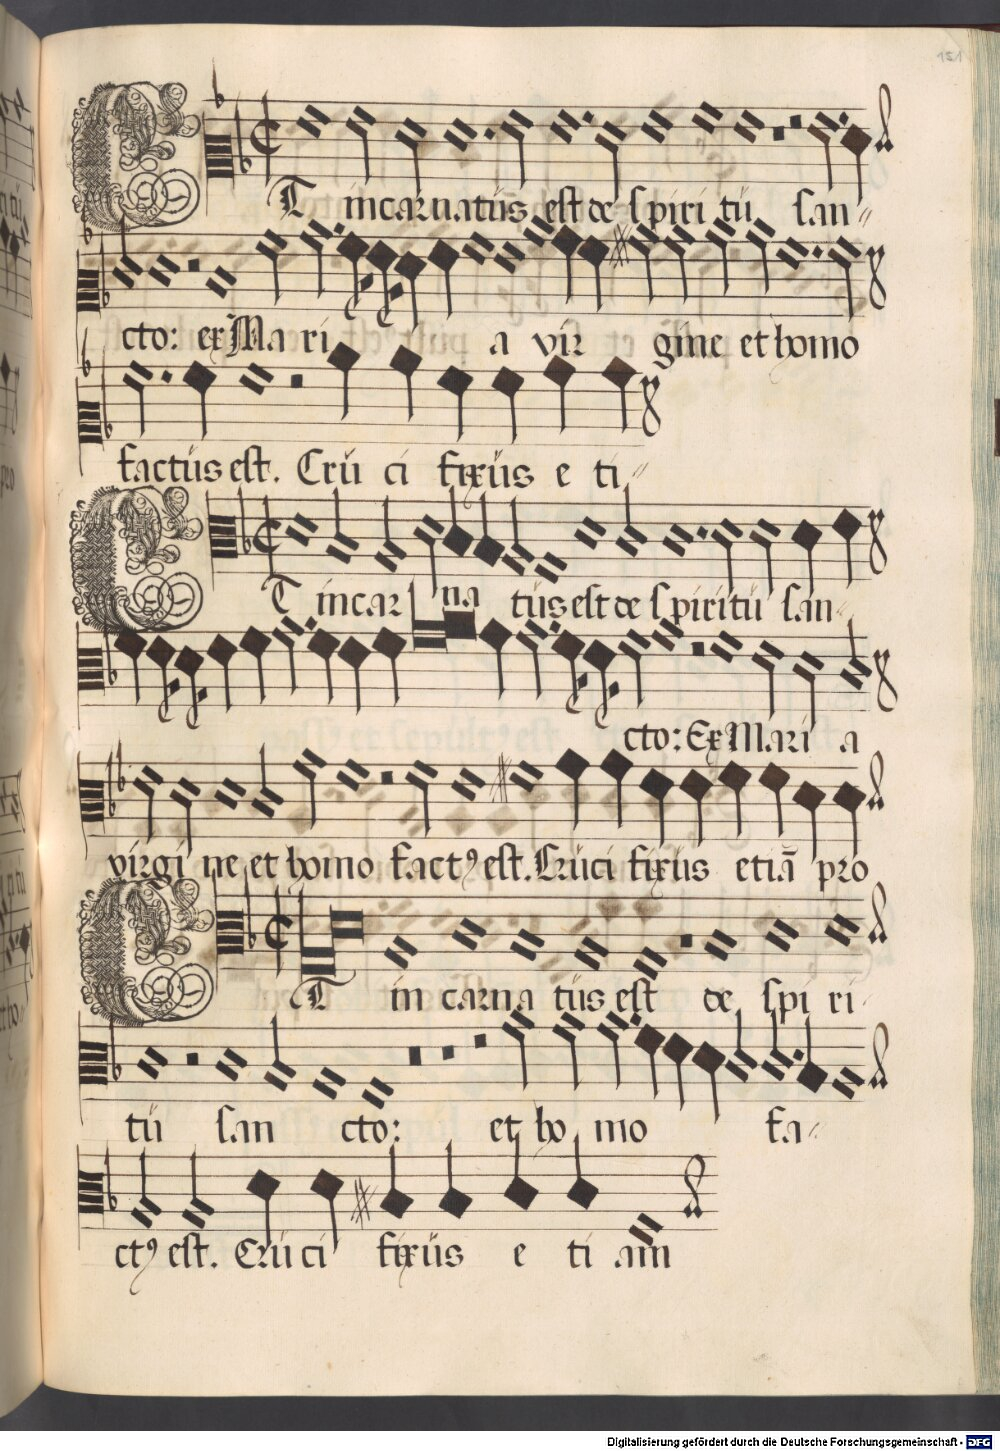 151
Et incarnatus est de spiri tu san
cto: ex Ma ri a vir gine et homo
factus est. Cru ci fixus e ti
Et incar na tus est de spiritu san
cto: Ex Mari a
virgi ne et homo fact9 est. Cruci fixus etiā pro
Et in carna tus est de spi ri
tu san cto: et ho mo fa
ct9 est. Cru ci fixus e ti am
Digitalisierung gefördert durch die Deutsche Forschungsgemeinschaft - DFG